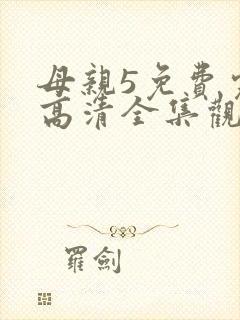 母親5免費
高清全集觀
羅劍